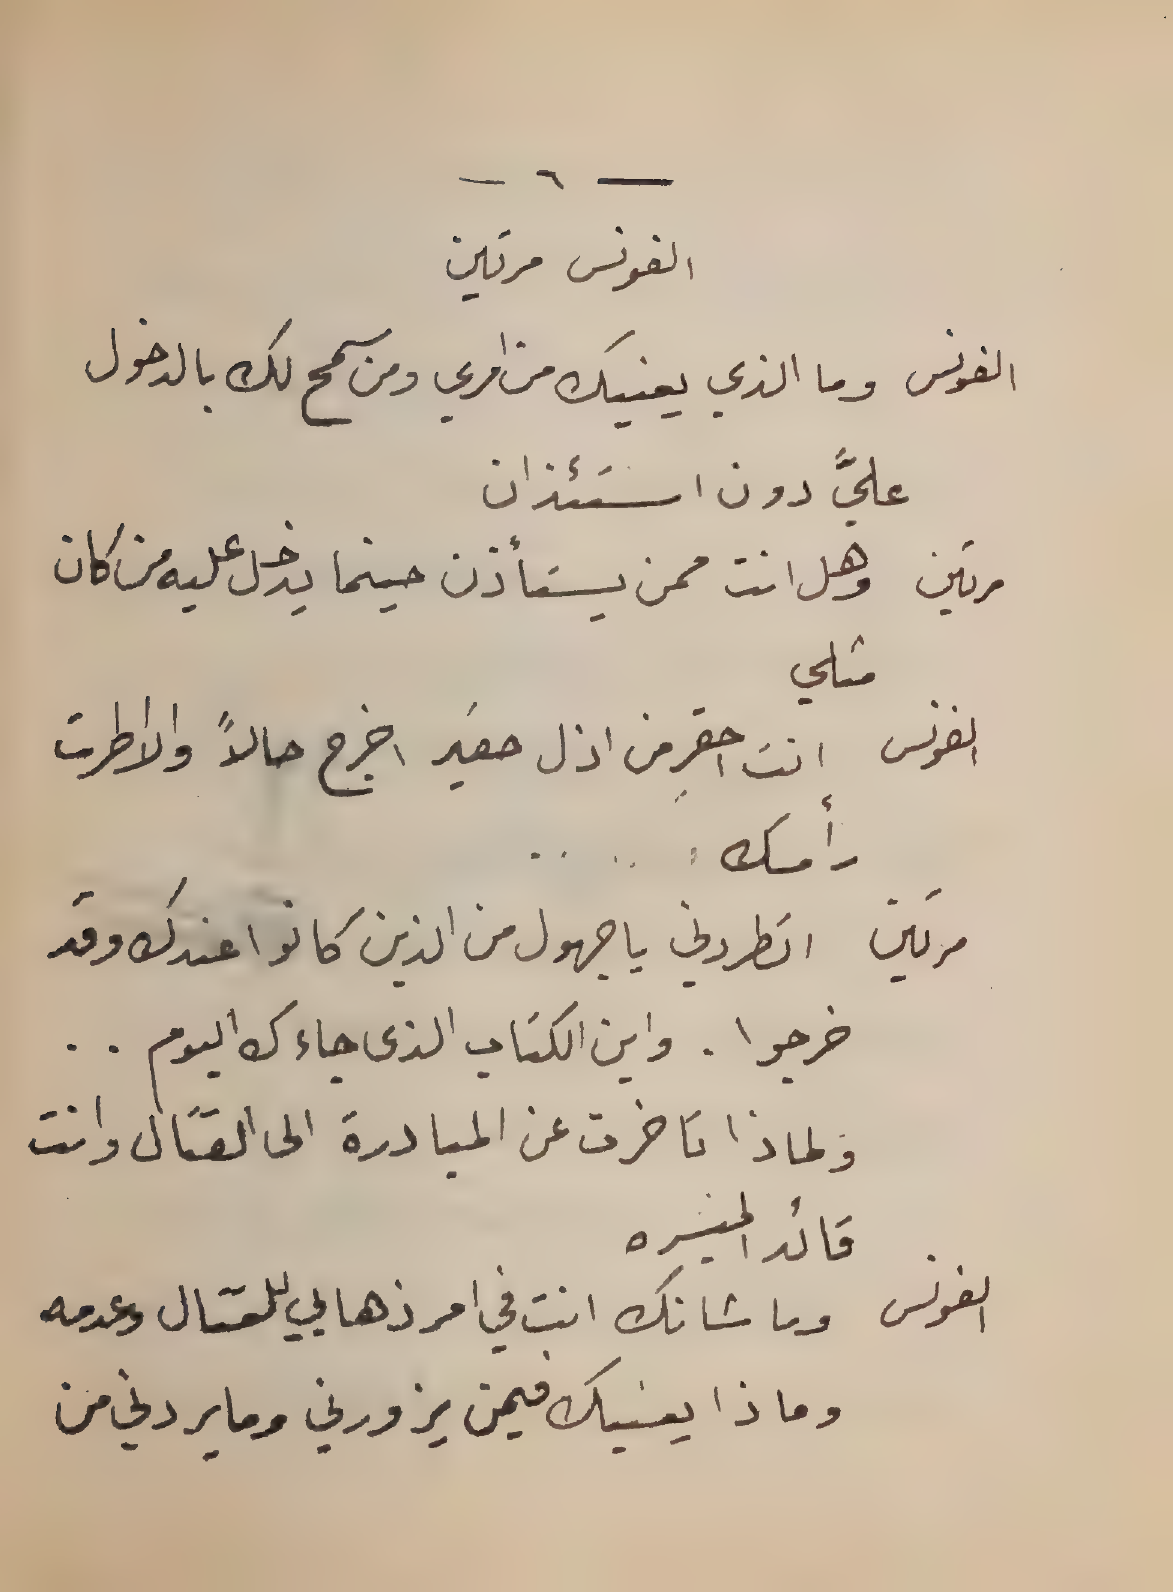 — ٦ —
الفونس مرتين
الفونس وما الذي يعنيك من امري ومن سمح لك بالدخول
عليَّ دون استئذان
مرتين وهل انت ممن يستأذن حينما يدخل عليه من كان
مثلي
الفونس انت احقر من اذل حقير اخرج حالاً والا اطرت
رأسك ! . . . .
مرتين اتطردني يا جهول من الذين كانوا عندك وقد
خرجوا . واين الكتاب الذي جاءك اليوم . .
ولماذا تاخرت عن المبادرة الى القتال وانت
قائد الميسره
الفونس وما شانك انت في امر ذهابي للقتال وعدمه
وماذا يعنيك فيمن يزورني وما يردني من